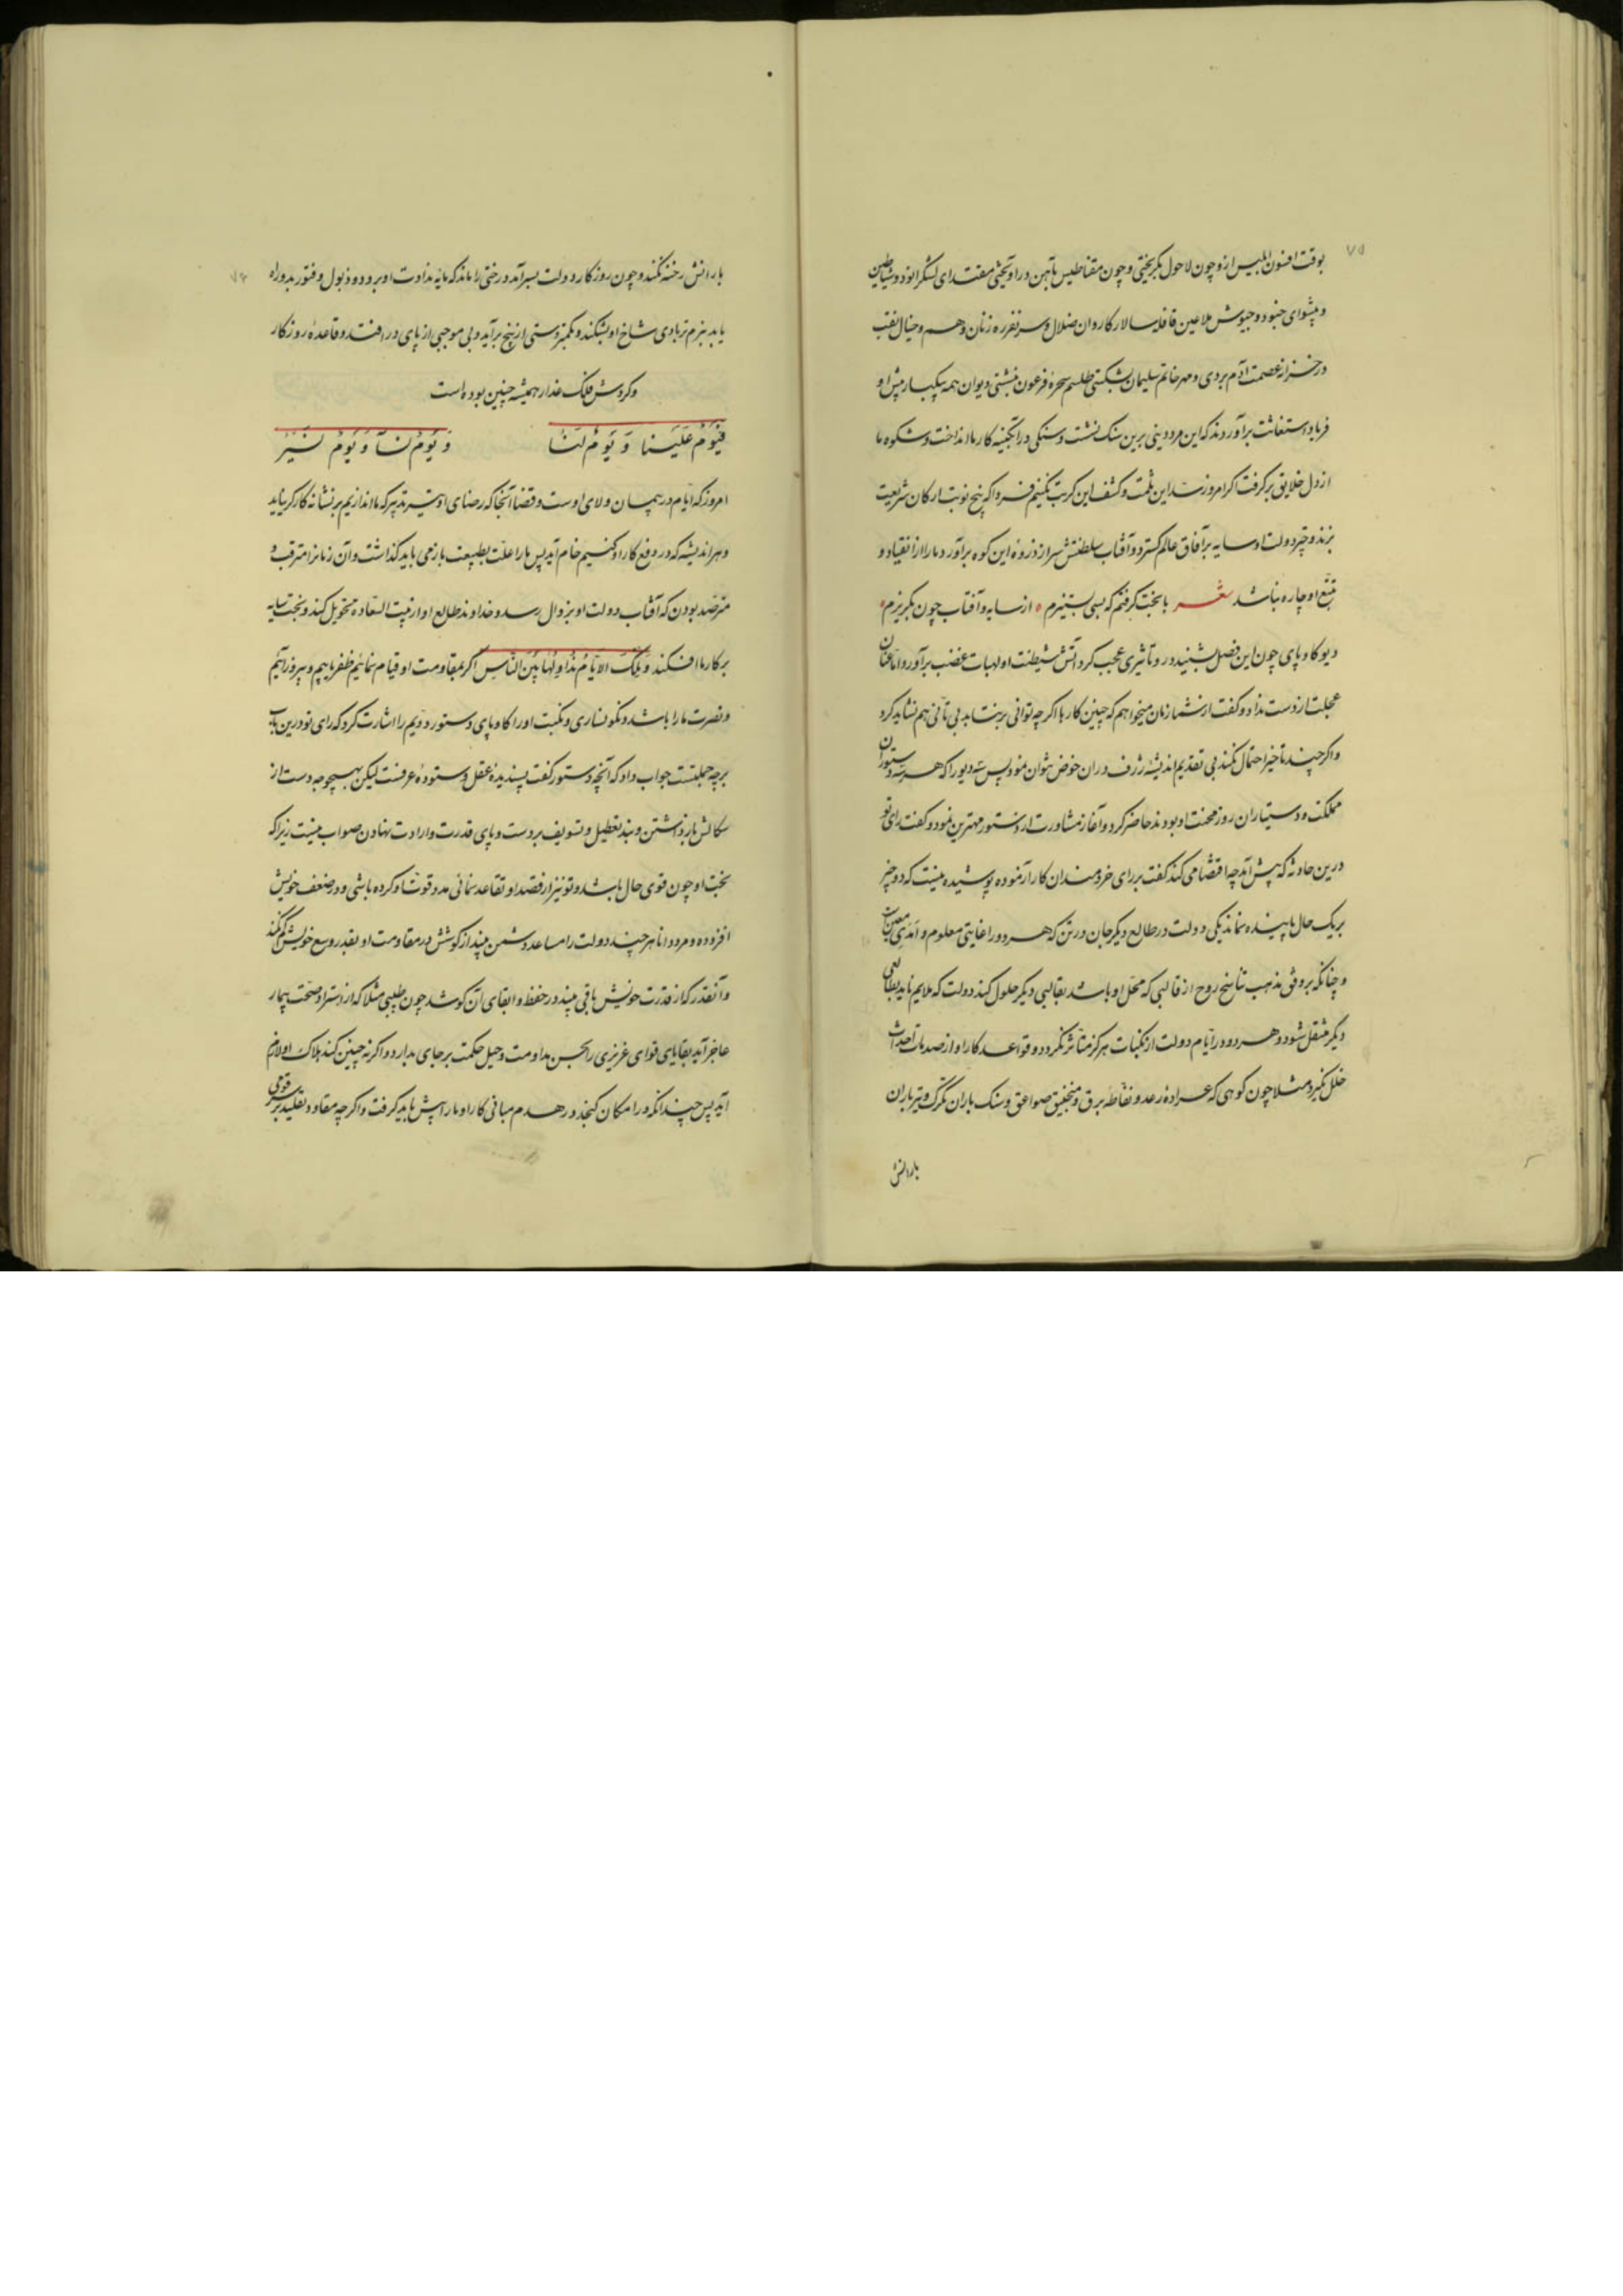 ۷۵
بوقت افسون ابلیس ازو چون لاحول بگریختی و چون مقناطیس بآهن در آویختی مقتدای لشکر او بود و شیاطین
و پیشوای جنود و جیوش ملاعین قافله سالار کاروان ضلال و سر نفر ره زنان وهم و خیال نقب
در خزانه عصمت آدم بردی و مهر خاتم سلیمان بشکستی طلسم سحره فرعون ببستی دیوان همه بیکبار پیش او
فریاد استغاثت برآوردند که این مرد دینی برین سنک نشست و سنکی در آبگینه کار ما انداخت و شکوه ما
از دل خلایق بر کرفت اکر امروز سد این ثلمت و کشف این کربت نکنیم فردا که پنج نوبت ارکان شریعت
بزند و چتر دولت او سایه بر آفاق عالم کسترد و آفتاب سلطنتش سر از ذروه این کوه برآورد ما را از انقیاد و
تتبع او چاره نباشد شعر با بخت کرفتم که بسی بستیزم ° از سایه و آفتاب چون بگریزم °
دیو کاوپای چون این فصل بشنید در و تأثیری عجب کرد آتش شیطنت او لهبات غضب برآورد اما عنان
عجلت از دست نداد و کفت از شما زمان میخواهم که چنین کارها اکر چه توانی بر نتابد بی تأنی هم نشاید کرد
و اکر چند تأخیر احتمال نکند بی تقدیم اندیشه ژرف در آن خوض نتوان نمود پس سه دیو را که هر سه دستوران
مملکت و دستیاران روز محنت او بودند حاضر کرد و آغاز مشاورت از دستور مهترین نمود و کفت رای تو
درین حادثه که پیش آمد چه اقتضا می کند کفت بر رای خردمندان کار آزموده پوشیده نیست که دو چیز
بر یک حال پاینده نماند یکی دولت در طالع دیکر جان در تن که هر دو را غایتی معلوم و امدی معین است
و چنانکه بر وفق مذهب تناسخ روح از قالبی که محل او باشد بقالبی دیکر حلول کند دولت که ملایم ناید بطالعی
دیکر منتقل شود و هر دو در ایام دولت از نکبات هرکز متأثر نکردد و قواعد کار او از صدمات احداث
خلل نکیرد مثلا چون کوهی که عراده رعد و نفاطه برق و منجنیق صواعق و سنک باران تگرک و تیر باران
بارانش
۷۶
بارانش رخنه نکند و چون روزکار دولت بسر آمد درختی را ماند که مایه نداوت او برود و ذبول و فتور بدو راه
یابد بنرم تر بادی شاخ او بشکند و بکمتر دستی از بیخ برآید و بی موجبی از پای در افتد و قاعده روزکار
و کردوش فلک غدار همیشه چنین بوده است
فَیَومٌ عَلَینا وَ یَومٌ لَنا وَ یَومٌ نُسآءُ وَ یَومٌ نُسَرُّ
امروز که ایام در پیمان ولای اوست و قضا آنجا که رضای او تیر تدبیر که ما اندازیم بر نشانه کارکر نیاید
و هر اندیشه که در دفع کار او کنیم خام آید پس ما را علت بطبیعت باز می باید کذاشت و آن زمانرا مترقب و
مترصد بودن که آفتاب دولت او بزوال رسد و خداوند طالع او از بیت السعاده تحویل کند و بخت سایه
بر کار ما افکند وَ تِلکَ الاَیّامُ نُداوِلُها بَینَ النّاسِ اکر بمقاومت او قیام نمائیم ظفر یابیم و پیروز آئیم
و نصرت ما را باشد و نکونساری و نکبت او را کاوپای دستور دویم را اشارت کرد که رای تو درین باب
بر چه جملتست جواب داد که آنچه دستور کفت پسندیده عقل و ستوده عرفست لیکن بهیچوجه دست از
سکالش باز داشتن و بند تعطیل و تسویف بر دست و پای قدرت و ارادت نهادن صواب نیست زیرا که
بخت او چون قوی حال باشد و تو نیز از قصد او تقاعد نمائی مدد قوت او کرده باشی و در ضعف خویش
افزوده و مرد دانا هر چند دولت را مساعد دشمن بیند از کوشش در مقاومت او بقدر وسع خویش کم نکند
و آنقدر که از قدرت خویش باقی بیند در حفظ و ابقای آن کوشد چون طبیبی مثلا که از استرداد صحت بیمار
عاجز آید بقایای قوای غریزی را بحسن مداومت و حیل حکمت بر جای بدارد و اکر نه چنین کند هلاک او لازم
آید پس چندانکه در امکان کنجد در هدم مبانی کار او ما را پیش باید کرفت و اکر چه مقاود تقلید بر سر قومی